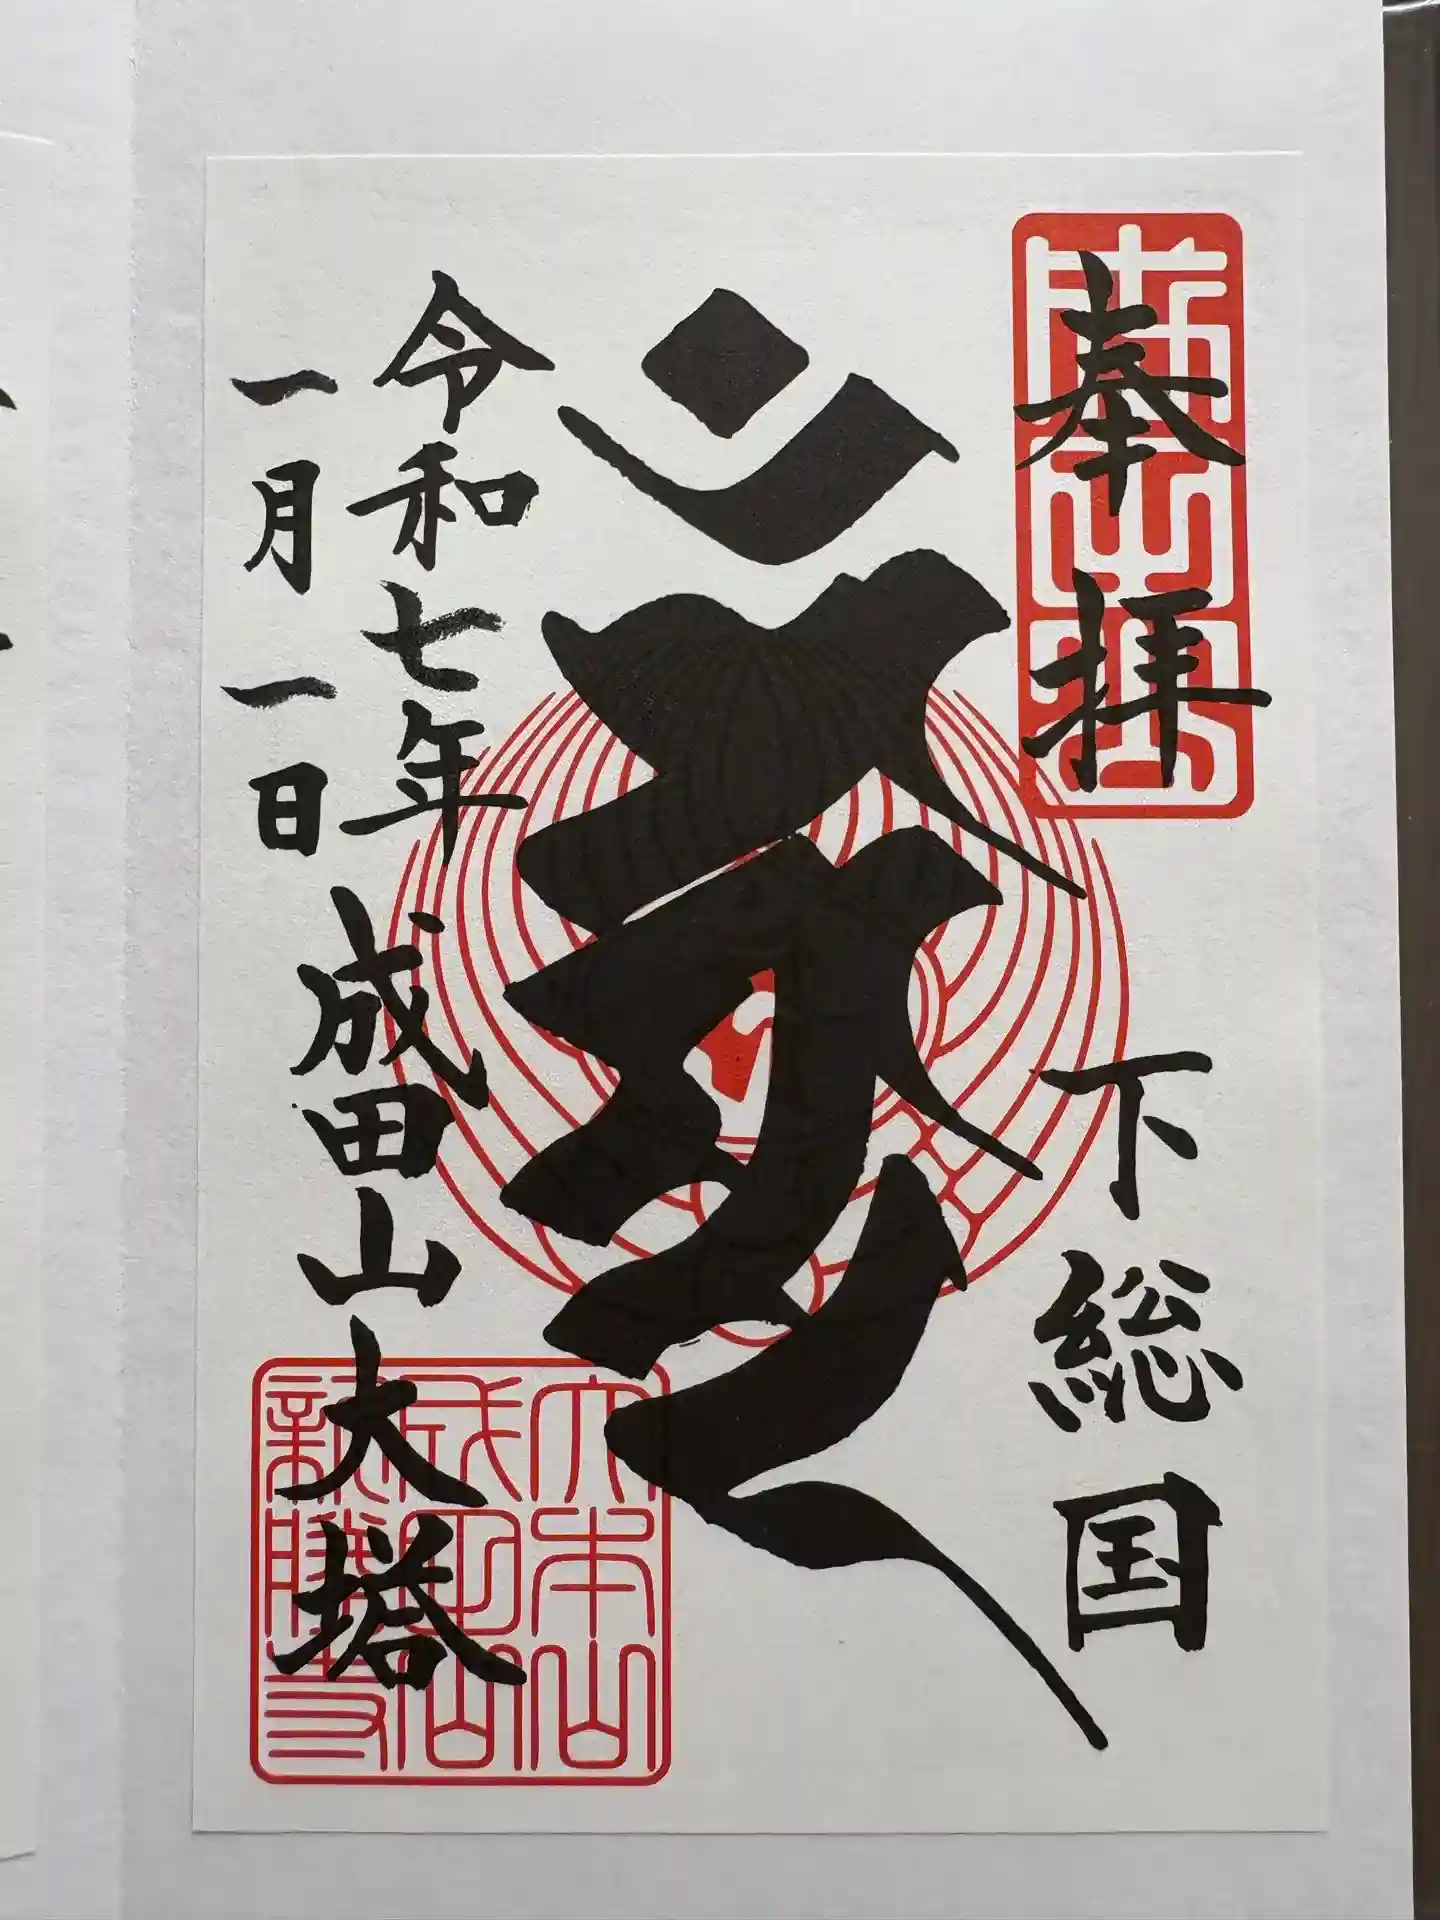 奉拝
成田山
下総国
𑖮𑖿𑖦𑖿𑖦𑖯𑖽
令和七年
一月一日
成田山大塔
大本山
成田山
新勝寺